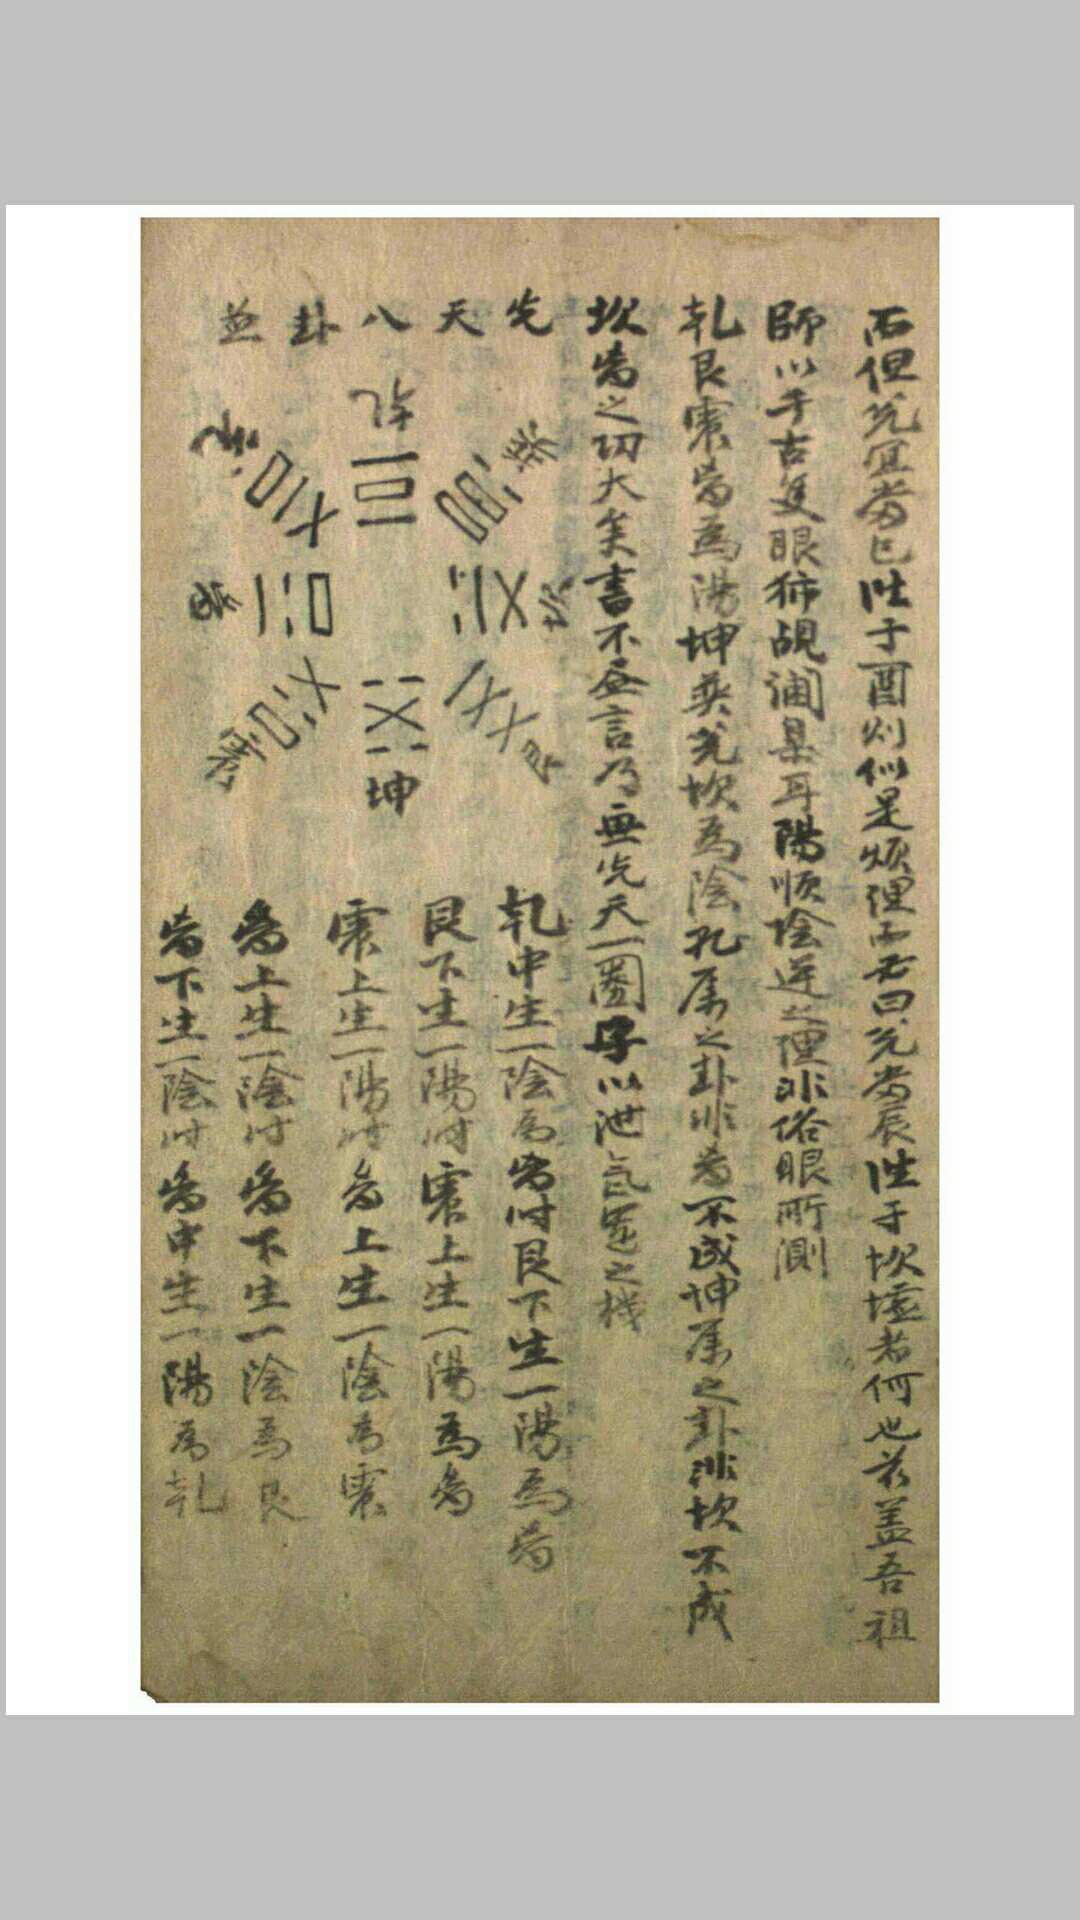 而但兌宜當巳性于酉則似是煩理而又曰兌當辰性于坎墟者何也哉盖吾祖
師以千古隻眼獅覘闡杲耳陽順陰逆之理非俗眼所測
乾艮震离為陽坤巽兌坎為陰乾屬之卦非离不成坤屬之卦非坎不成
坎离之功大矣書不盡言乃無先天一圈子以泄氣運之機
先天八卦並
乾
兌
巽
离
坎
震
艮
坤
乾中生一陰為离付艮下生一陽為离
艮下生一陽付震上生一陽為离
震上生一陽付离上生一陰為震
离上生一陰付离下生一陰為艮
离下生一陰付离中生一陽為乾